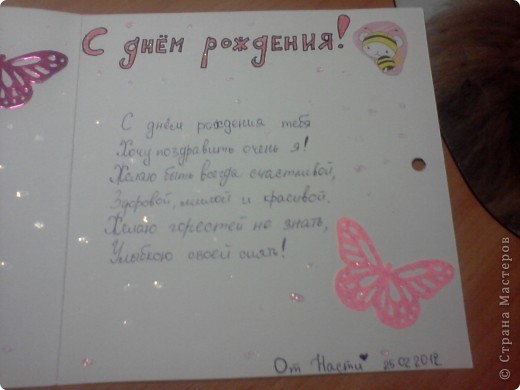 С днём рождения!
С днем рождения тебя
Хочу поздравить очень я!
Желаю быть всегда счастливой,
Здоровой, милой и красивой.
Желаю горестей не знать,
Улыбкою своей сиять!
От Насти ♥ 25.02.2012
© Страна Мастеров